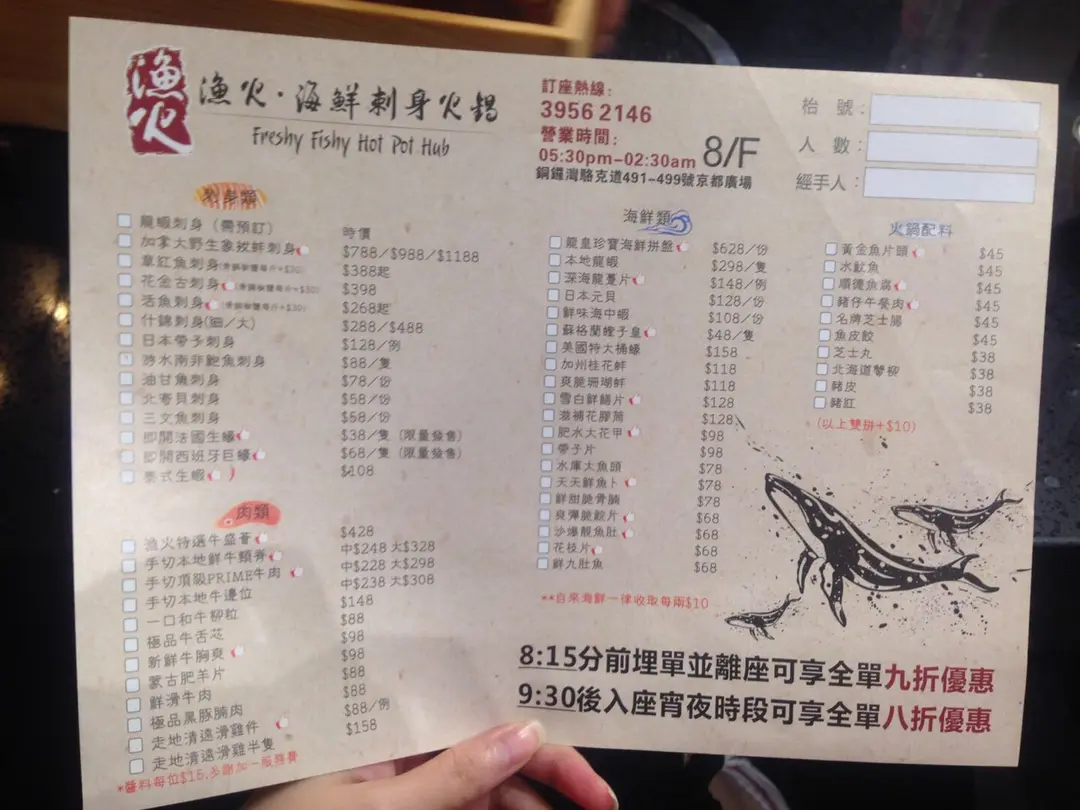 漁火
漁火·海鮮刺身火鍋
Freshy Fishy Hot Pot Hub
訂座熱線:
3956 2146
營業時間:
05:30pm-02:30am 8/F
銅鑼灣駱克道491-499號京都廣場
枱 號:
人 數:
經手人:
刺身類
龍蝦刺身 (需預訂) 時價
加拿大野生象拔蚌刺身 $788/$988/$1188
章紅魚刺身 $388起
花金古刺身 $398
活魚刺身 $268起
什錦刺身(細/大) $288/$488
日本帶子刺身 $128/例
游水南非鮑魚刺身 $88/隻
油甘魚刺身 $78/份
北寄貝刺身 $58/份
三文魚刺身 $58/份
即開法國生蠔 $38/隻 (限量發售)
即開西班牙巨蠔 $68/隻 (限量發售)
泰式生蝦 $108
肉類
漁火特選牛盛薈 $428
手切本地鮮牛頸脊 中$248 大$328
手切頂級PRIME牛肉 中$228 大$298
手切本地牛邊位 中$238 大$308
一口和牛柳粒 $148
極品牛舌芯 $88
新鮮牛胸爽 $98
蒙古肥羊片 $98
鮮滑牛肉 $88
極品黑豚腩肉 $88
走地清遠滑雞件 $88/例
走地清遠滑雞半隻 $158
*醬料每位$15,多謝加一服務費
海鮮類
龍皇珍寶海鮮拼盤 $628/份
本地龍蝦 $298/隻
深海龍躉片 $148/例
日本元貝 $128/份
鮮味海中蝦 $108/份
蘇格蘭蟶子皇 $48/隻
美國特大桶蠔 $158
加州桂花蚌 $118
爽脆珊瑚蚌 $118
雪白鮮鱔片 $128
滋補花膠筒 $128
肥水大花甲 $98
帶子片 $98
水庫大魚頭 $78
天天鮮魚卜 $78
鮮甜脆骨腩 $78
爽彈脆鮫片 $68
沙爆靚魚肚 $68
花枝片 $68
鮮九肚魚 $68
**自來海鮮一律收取每兩$10
火鍋配料
黃金魚片頭 $45
水魷魚 $45
順德魚腐 $45
豬仔午餐肉 $45
名牌芝士腸 $45
魚皮餃 $45
芝士丸 $38
北海道蟹柳 $38
豬皮 $38
豬紅 $38
(以上雙拼+$10)
8:15分前埋單並離座可享全單九折優惠
9:30後入座宵夜時段可享全單八折優惠